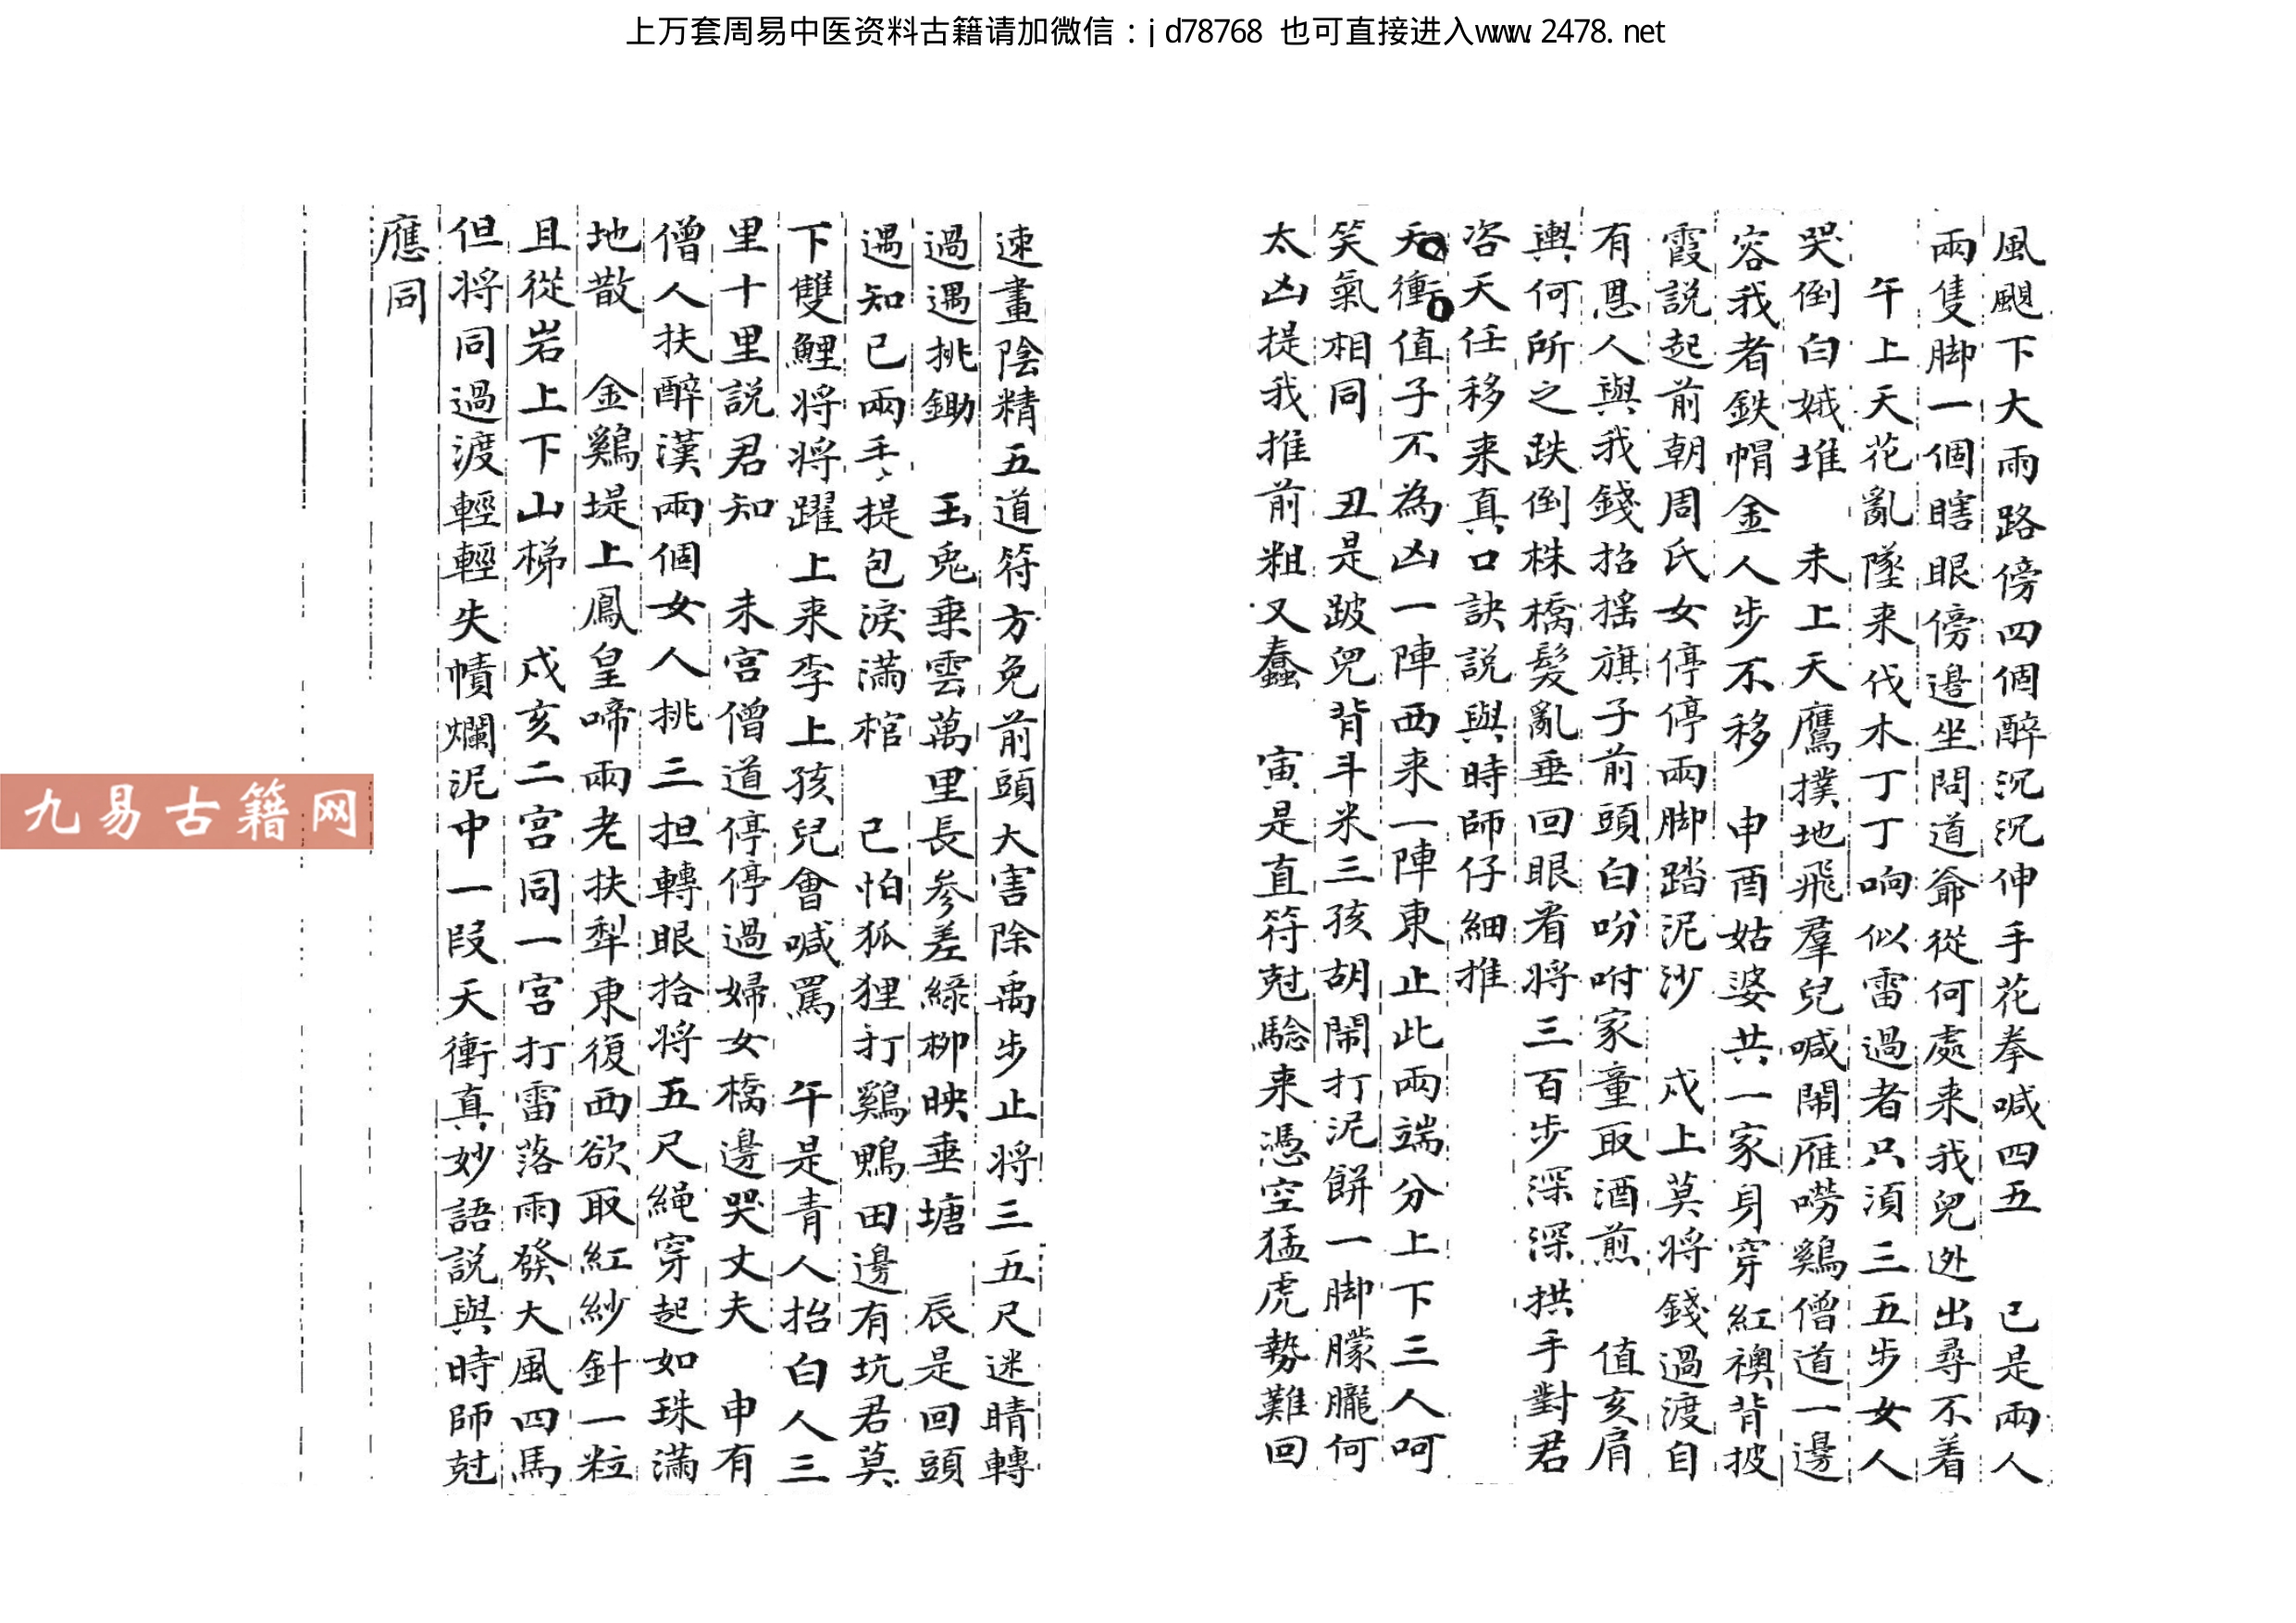 上万套周易中医资料古籍请加微信：jd78768 也可直接进入www.2478.net
風颶下大雨路傍四個醉沉沉伸手花拳喊四五　巳是兩人
兩隻脚一個瞎眼傍邊坐問道爺從何處来我兒迯出尋不着
午上天花亂墜来伐木丁丁响似雷過者只湏三五步女人
哭倒白娥堆　未上天鷹撲地飛羣兒喊鬧雁唠鷄僧道一邊
容我者鉄帽金人步不移　申酉姑婆共一家身穿紅襖背披
霞説起前朝周氏女停停兩脚踏泥沙　戌上莫将錢過渡自
有恩人與我錢招搖旗子前頭白吩咐家童取酒煎　值亥肩
輿何所之跌倒株橋髮亂垂回眼看将三百步深深拱手對君
咨天任移来真口訣説與時師仔細推
天衝值子不為凶一陣西来一陣東止此兩端分上下三人呵
笑氣相同　丑是跛兒背斗米三孩胡鬧打泥餅一脚朦朧何
太凶提我推前粗又蠢　寅是直符尅騐来憑空猛虎勢難回
速畫陰精五道符方免前頭大害除禹步止将三五尺迷睛轉
過遇挑鋤　玉兎乗雲萬里長參差綠柳映垂塘　辰是回頭
遇知己兩手提包淚滿棺　已怕狐狸打鷄鴨田邊有坑君莫
下雙鯉将将躍上来李上孩兒會喊罵　午是青人抬白人三
里十里説君知　未宮僧道停停過婦女橋邊哭丈夫　申有
僧人扶醉漢兩個女人挑三担轉眼拾将五尺繩穿起如珠滿
地散　金鷄堤上鳳皇啼兩老扶犁東復西欲取紅紗針一粒
且從岩上下山梯　戌亥二宮同一宮打雷落雨發大風四馬
但将同過渡輕輕失幘爛泥中一段天衝真妙語説與時師尅
應同
九易古籍网